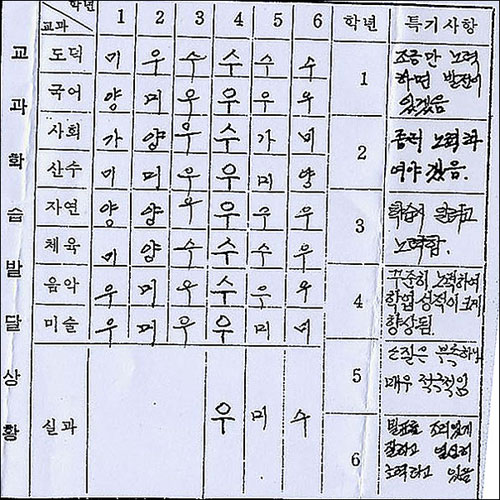 교과학습발달상황
학년 1 2 3 4 5 6 학년 특기사항
교과
도덕 미 우 수 수 수 수
국어 양 미 우 우 우 우
사회 가 양 우 수 가 미
산수 미 미 우 우 미 양
자연 양 양 우 우 우 우
체육 미 양 수 수 수 우
음악 우 미 우 수 우 우
미술 우 미 우 우 미 미
실과 우 미 수
1 조금만 노력
하면 발전이
있겠음
2 좀더 노력하
여야 겠음.
3 학습에
노력함.
4 꾸준히 노력하여
학업성적이 크게
향상됨.
5 소질은 부족하나
매우 적극적임
6 발표를 조리있게
잘하고 열심히
노력하고 있음